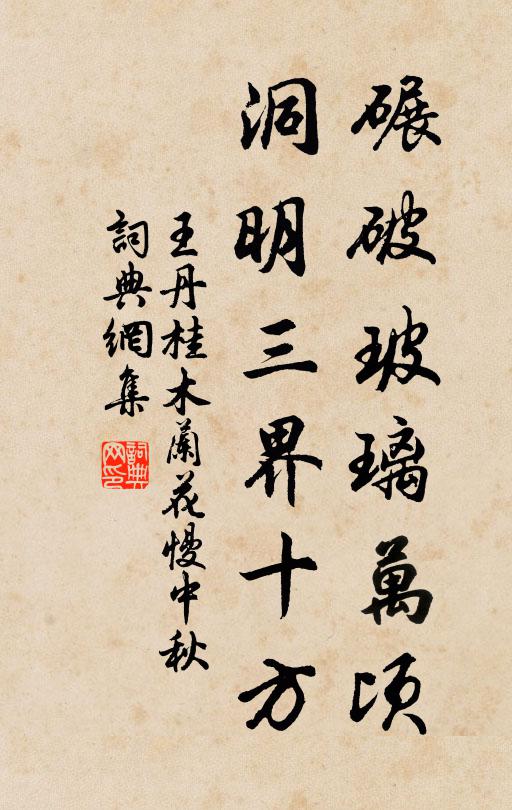 碾破玻璃萬頃
洞明三界十方
王丹桂木蘭花慢中秋
詞典網集
詞典
网印